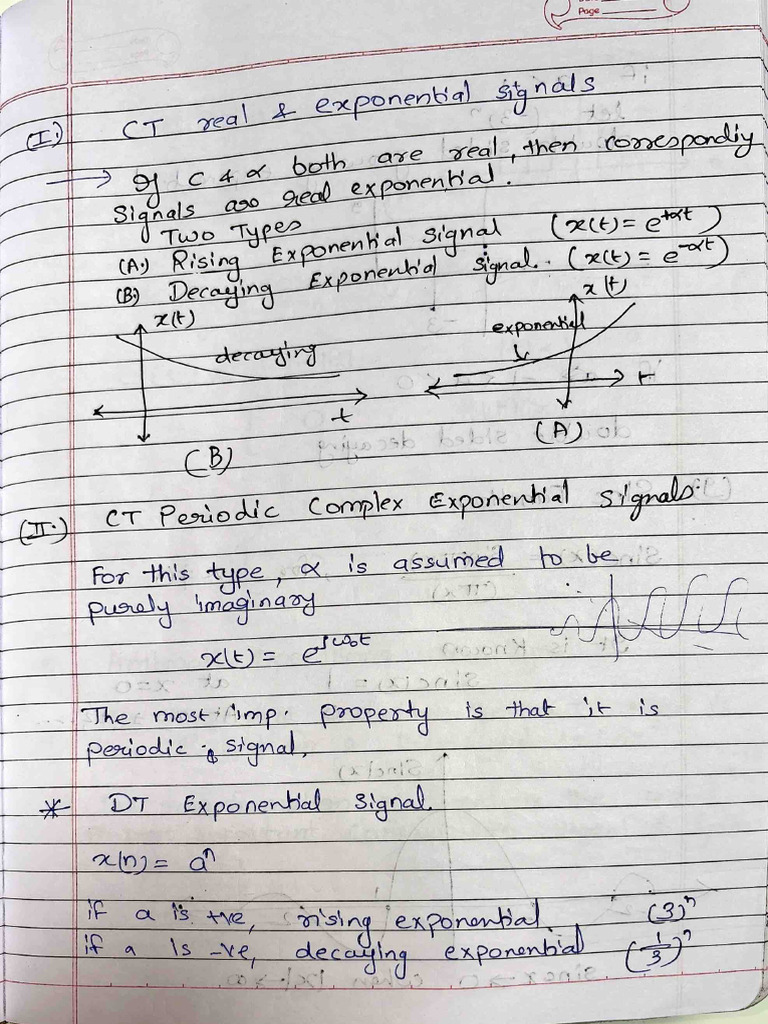 Page
(I.) CT real & exponential signals
→ If C & α both are real, then correspondiy
signals are real exponential.
Two Types
(A.) Rising Exponential Signal (x(t) = e^{+αt})
(B.) Decaying Exponential signal. (x(t) = e^{-αt})
x(t) x(t)
decaying exponential
t t
(B) (A)
(II.) CT Periodic Complex Exponential Signals.
For this type, α is assumed to be
purely imaginary
x(t) = e^{jω₀t}
The most imp. property is that it is
periodic signal.
* DT Exponential Signal.
x(n) = aⁿ
if a is +ve, rising exponential (3)ⁿ
if a is -ve, decaying exponential (1/3)ⁿ